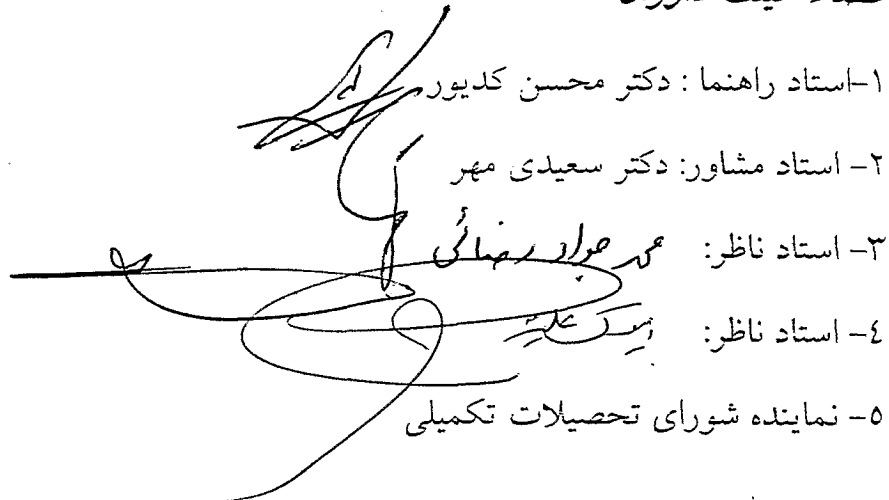 ۱-استاد راهنما : دکتر محسن کدیور
۲- استاد مشاور: دکتر سعیدی مهر
۳- استاد ناظر: محمد جواد رضائی
٤- استاد ناظر:
۵- نماینده شورای تحصیلات تکمیلی